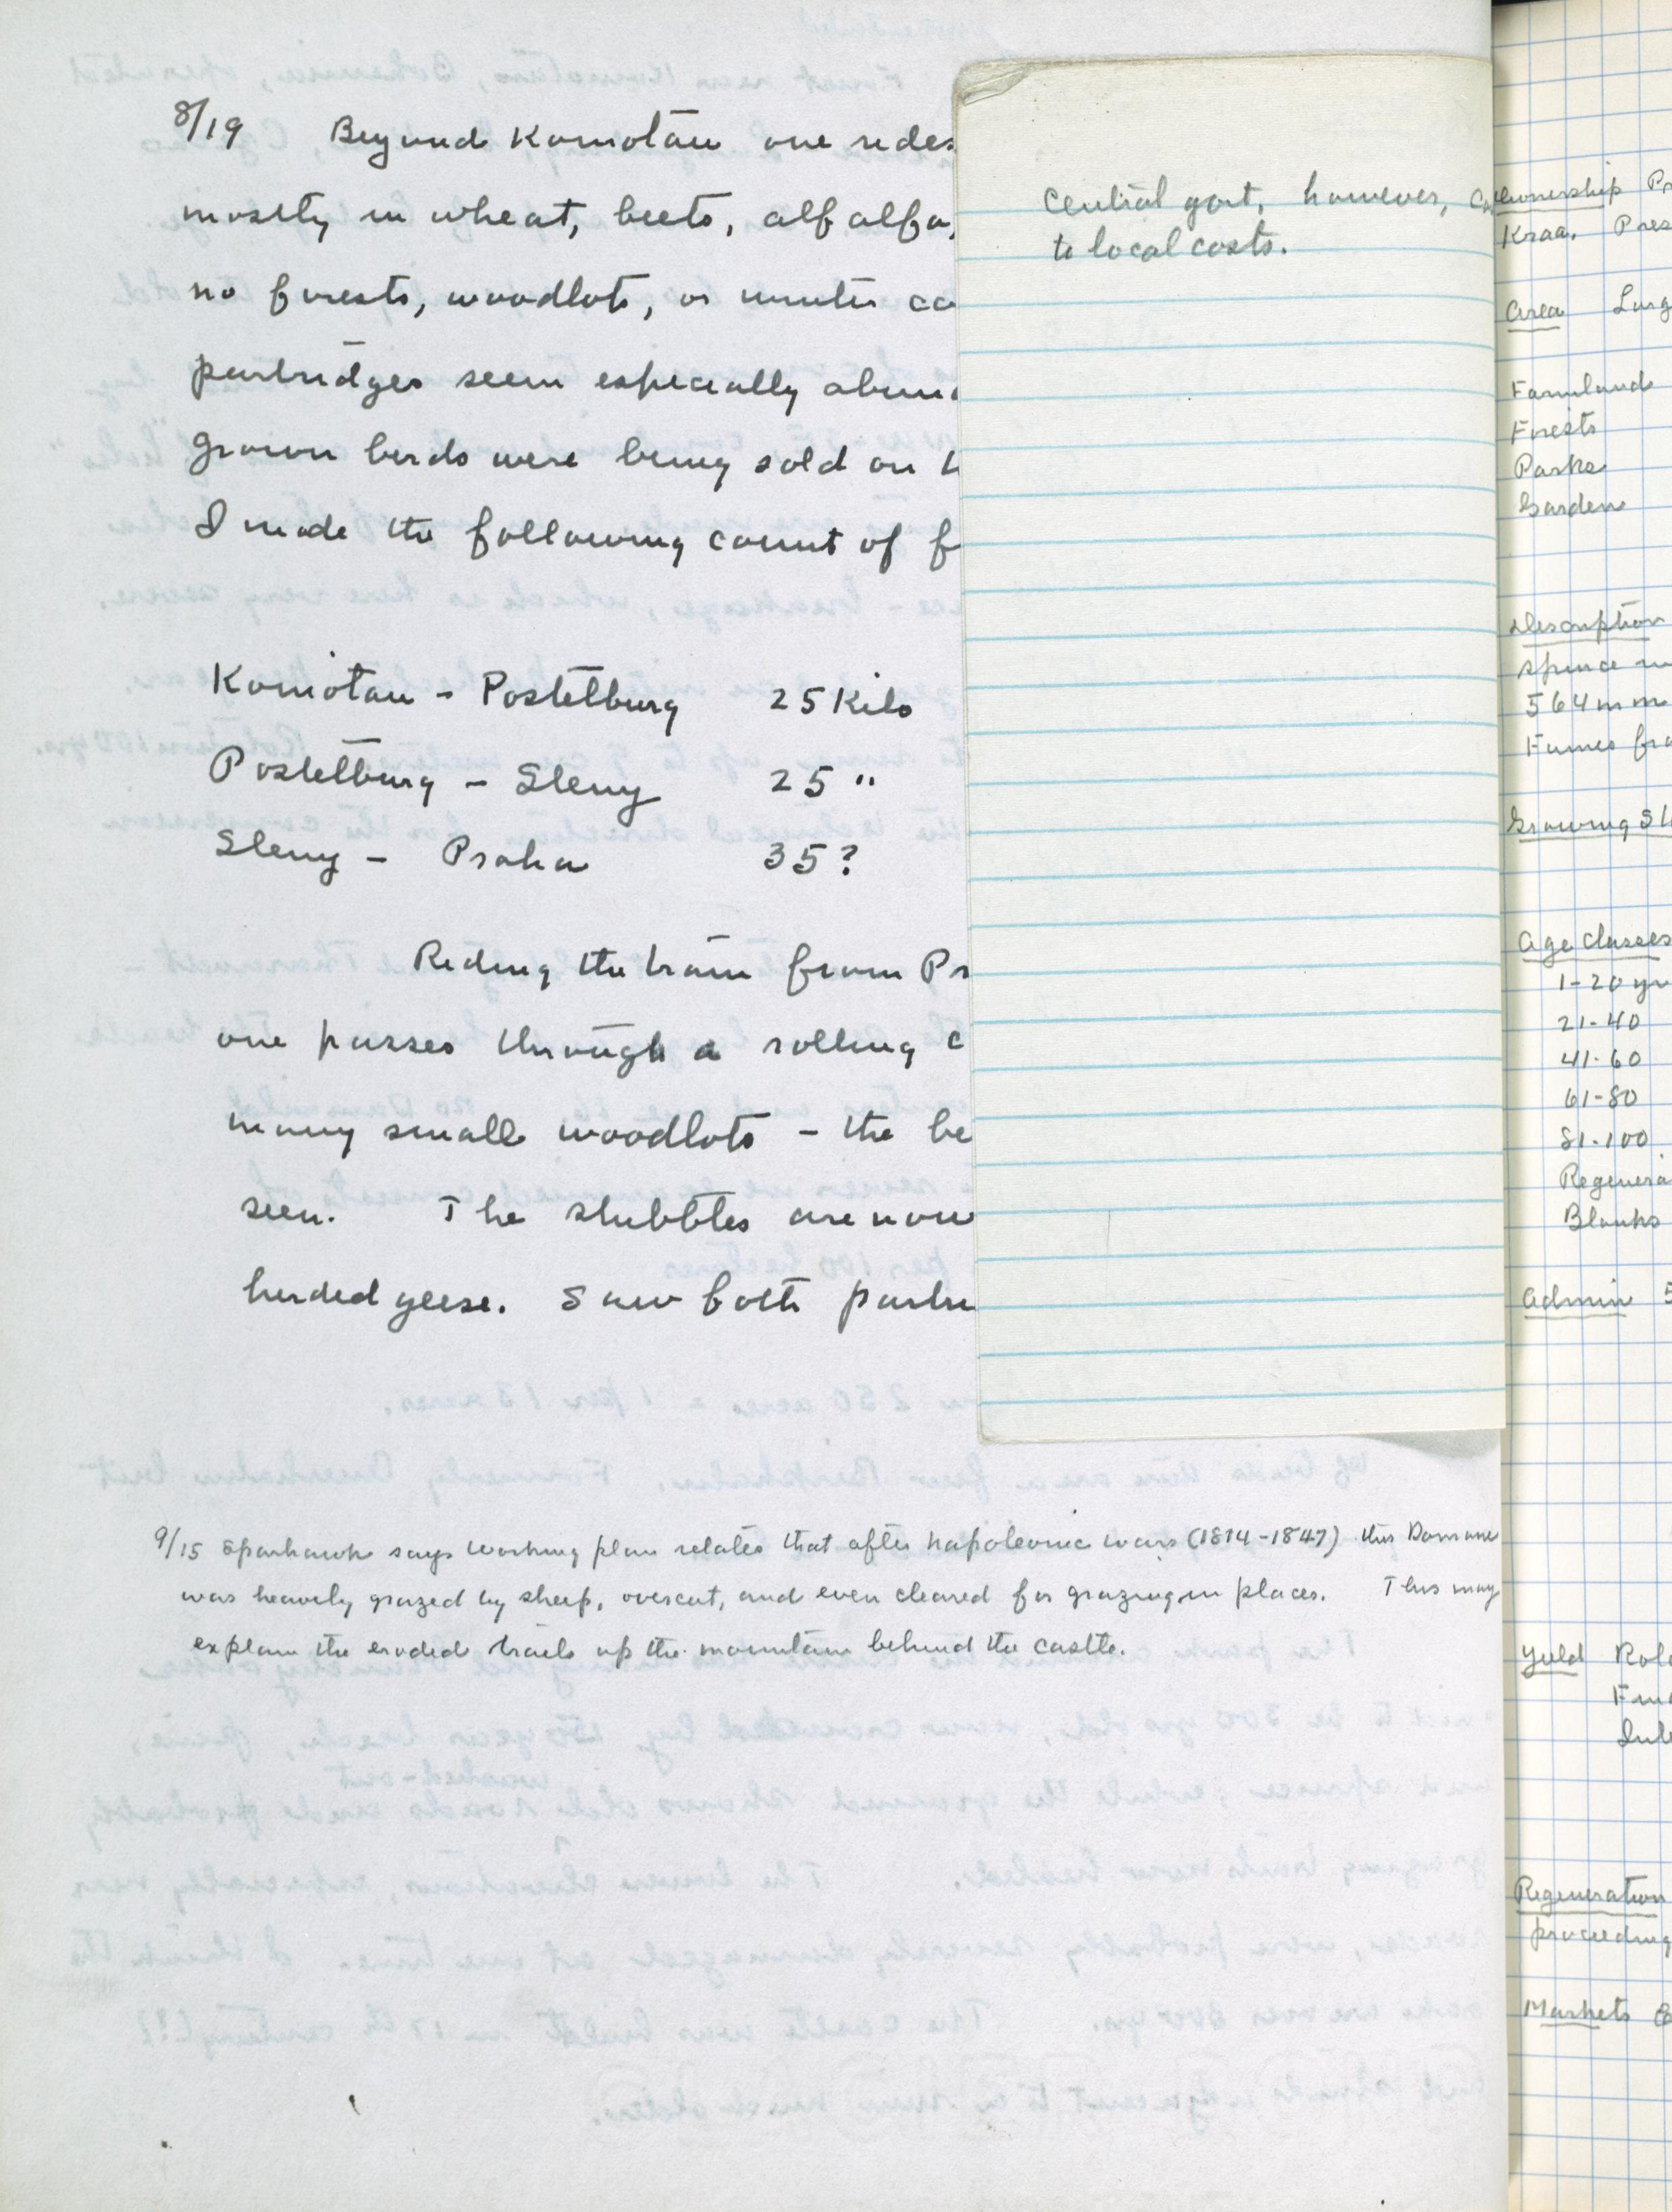 8/19 Beyond Komotau one rides
mostly in wheat, beets, alfalfa,
no forests, woodlots, or winter co
partridges seem especially abun
grown birds were being sold on
I made the following count of f
Komotau - Postelburg 25 Kilo
Postelburg - Sleny 25 "
Sleny - Praha 35?
Riding the train from Pr
one passes through a rolling c
many small woodlots - the be
seen. The stubbles are now
herded geese. Saw both partri
9/15 Sparhawk says working plan relates that after Napoleonic wars (1814-1847) this Domane
was heavily grazed by sheep, overcut, and even cleared for grazing in places. This may
explain the eroded trails up the mountain behind the castle.
central govt, however,
to local costs.
Ownership Pr
Kraa. Pres
Area Larg
Farmlands
Forests
Parks
Garden
Description
spruce
564 mm
Fumes fro
Growing St
Age classes
1-20 yr
21-40
41-60
61-80
81-100
Regenera
Blanks
Admin 5
Yield Rota
Fin
Inte
Regeneration
proceeding
Markets